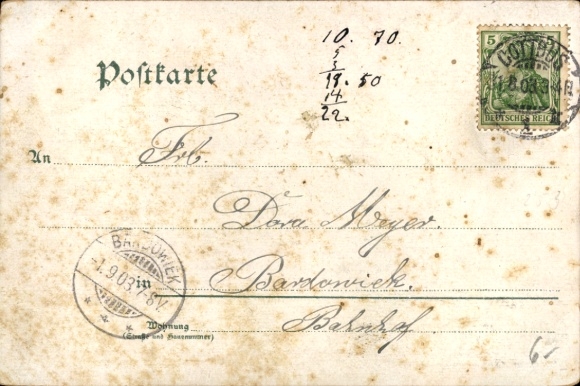 10. 70.
5
5
19. 50
14
22.
Postkarte
5
COTTBUS
DEUTSCHES REICH
1
An Frl.
Dora Meyer.
BARDOWIEK
-1.9.03.7-8V.
in Bardowiek.
Bahnhof
Wohnung
(Straße und Hausnummer)
6-